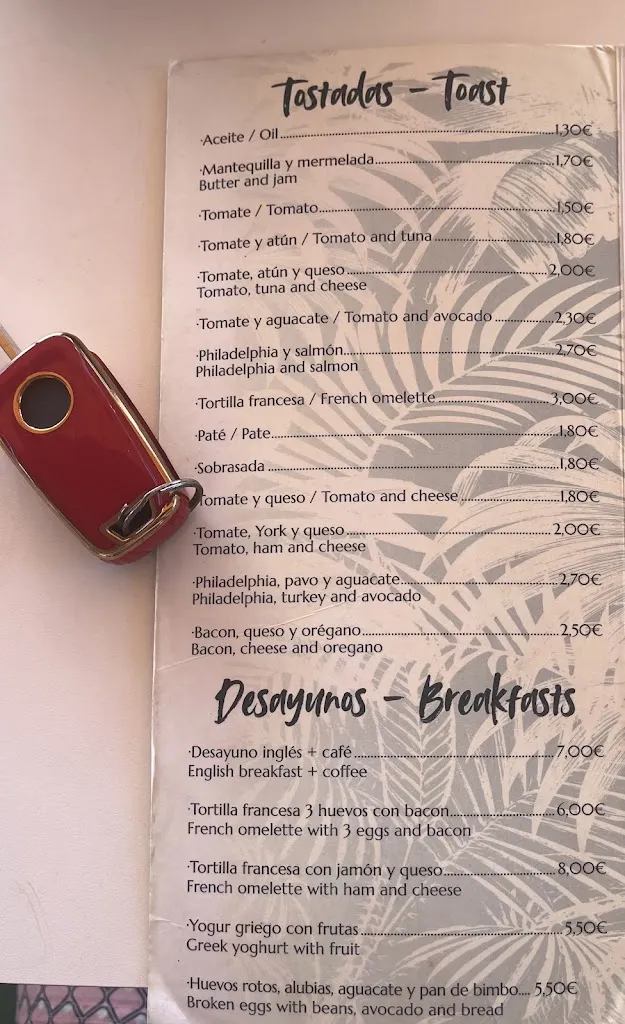 Tostadas - Toast
·Aceite / Oil 1,30€
·Mantequilla y mermelada 1,70€
Butter and jam
·Tomate / Tomato 1,50€
·Tomate y atún / Tomato and tuna 1,80€
·Tomate, atún y queso 2,00€
Tomato, tuna and cheese
·Tomate y aguacate / Tomato and avocado 2,30€
·Philadelphia y salmón 2,70€
Philadelphia and salmon
·Tortilla francesa / French omelette 3,00€
·Paté / Pate 1,80€
·Sobrasada 1,80€
Tomate y queso / Tomato and cheese 1,80€
·Tomate, York y queso 2,00€
Tomato, ham and cheese
·Philadelphia, pavo y aguacate 2,70€
Philadelphia, turkey and avocado
·Bacon, queso y orégano 2,50€
Bacon, cheese and oregano
Desayunos - Breakfasts
·Desayuno inglés + café 7,00€
English breakfast + coffee
·Tortilla francesa 3 huevos con bacon 6,00€
French omelette with 3 eggs and bacon
·Tortilla francesa con jamón y queso 8,00€
French omelette with ham and cheese
·Yogur griego con frutas 5,50€
Greek yoghurt with fruit
·Huevos rotos, alubias, aguacate y pan de bimbo.... 5,50€
Broken eggs with beans, avocado and bread